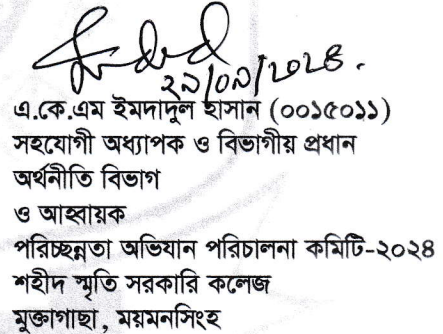 ২৯/০৯/২০২৪.
এ.কে.এম ইমদাদুল হাসান (০০১৫০১১)
সহযোগী অধ্যাপক ও বিভাগীয় প্রধান
অর্থনীতি বিভাগ
ও আহ্বায়ক
পরিচ্ছন্নতা অভিযান পরিচালনা কমিটি-২০২৪
শহীদ স্মৃতি সরকারি কলেজ
মুক্তাগাছা, ময়মনসিংহ